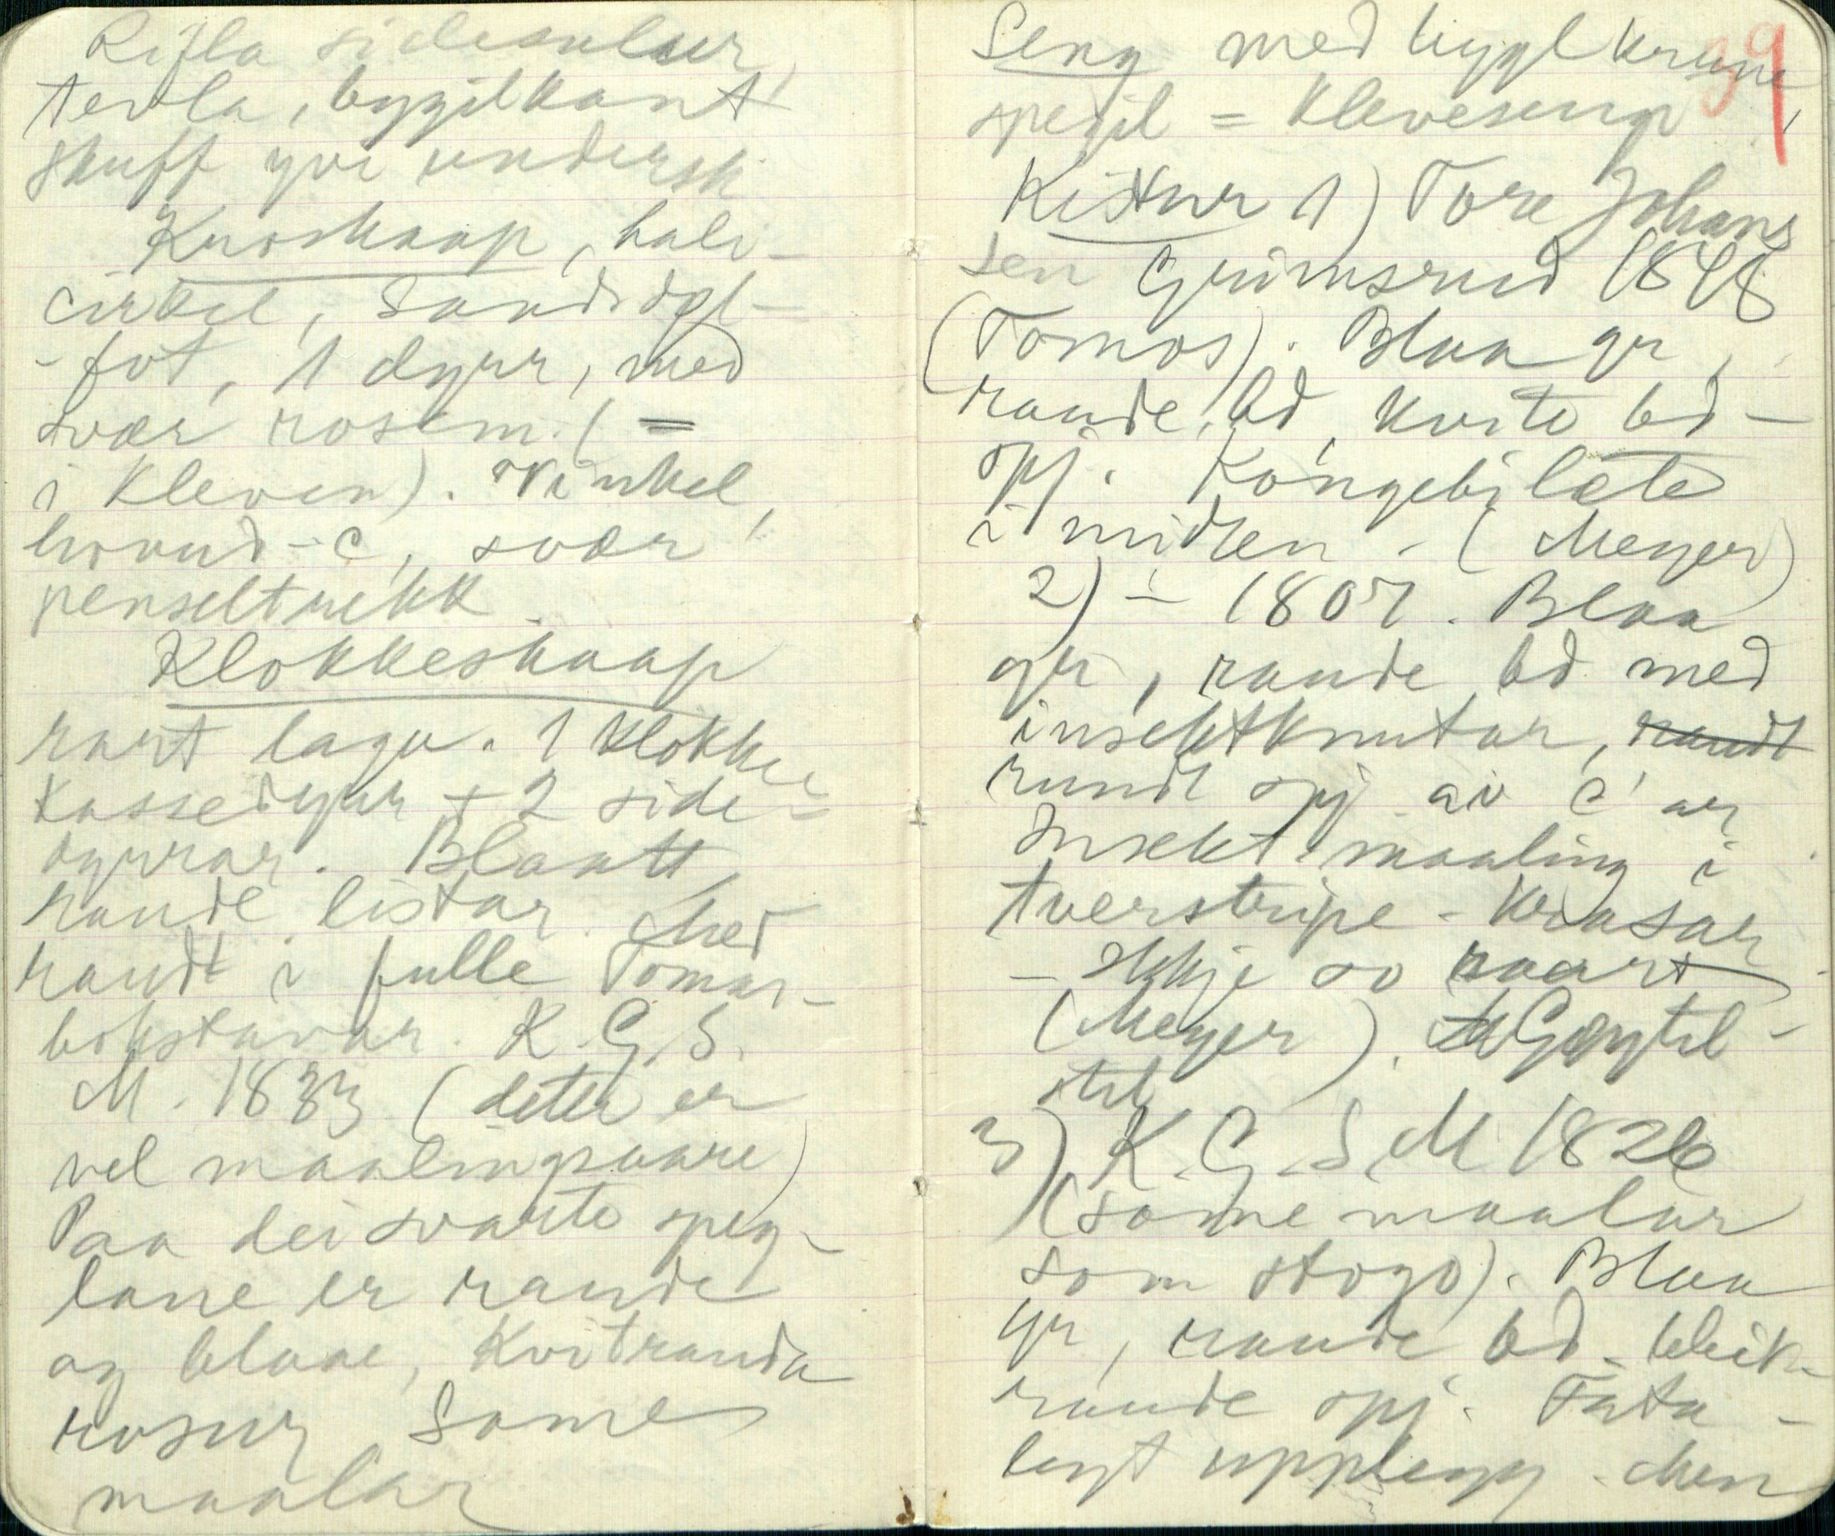 Rifla sidesulur,
tevla, bygilkant
skuff yvi undersk
Kroskaap, halv-
cirkel,
-fot, 1 dyrr, med
svær rosem. (=
i Kleven). Vinkel,
hovud-C, svær
penseltrekk.
Klokkeskaap
rart laga. 1 klokke-
kassedyrr + 2 side-
dyrrar. Blaatt,
raude listar. Med
raudt i fulle Romar-
bokstavar. K.G.S.
M. 1833 (dette er
vel maalingsaare)
Paa dei svarte speg-
lane er raude
og blaae, kvitranda
rosur Same
maalar
99
Seng med bygl krune,
spegil = Kleveseng
Kistur 1) Tore Johans
sen Grimsrud 1848
(Tomos). Blaa gr,
raude bd, kvite bd-
spj. Kongebilæte
i midten - (Meyer)
2) - 1807. Blaa
gr, raude bd med
insektknutar, raudt
rundt spj av C'ar
Insekt maaling i
tverstripe - Krusar
- Ikkje so rart
(Meyer).
stil
3) K.G.S.M 1826
(same maalar
som stogo). Blaa
gr, raude bd. bleik-
raude spj. Fata-
legt upplegg. Men